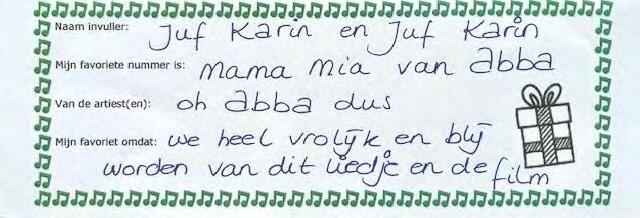 Naam invuller: Juf Karin en Juf Karin
Mijn favoriete nummer is: Mama Mia van abba
Van de artiest(en): oh abba dus
Mijn favoriet omdat: we heel vrolijk en blij
worden van dit liedje en de film